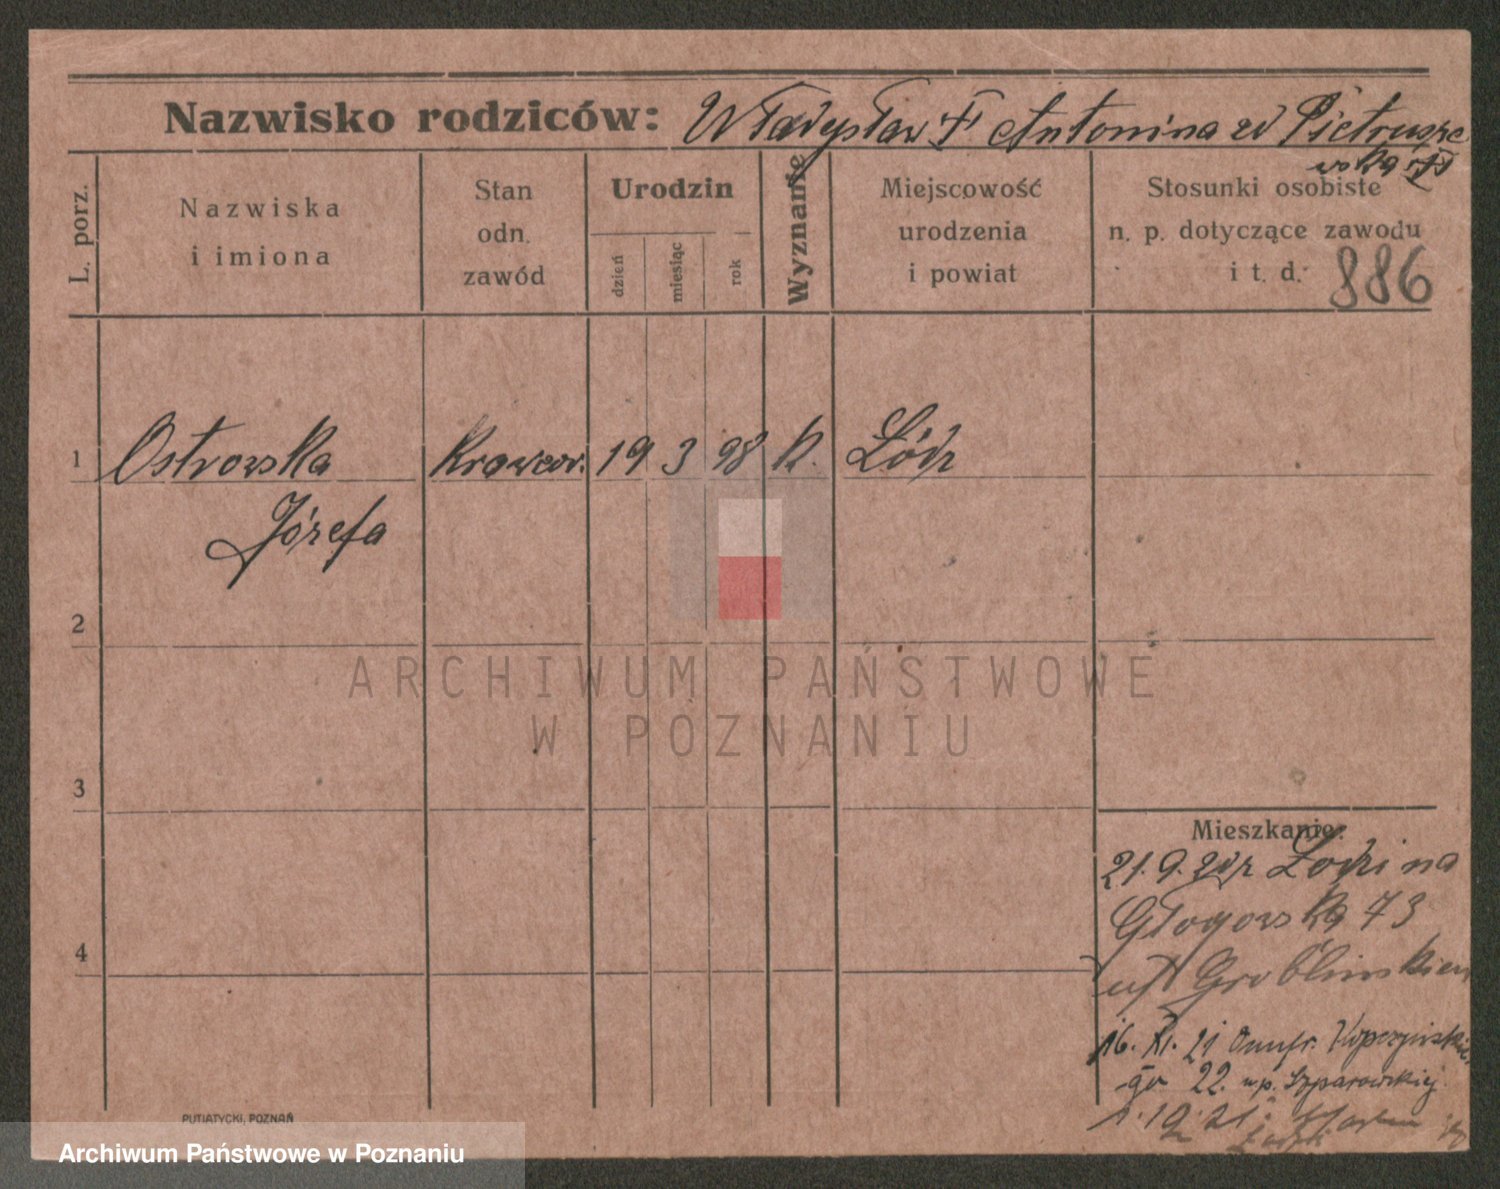 Nazwisko rodziców: Władysław † Antonina zd Pietrusze
wska
L. porz.
Nazwiska
i imiona
Stan
odn.
zawód
Urodzin
dzień
miesiąc
rok
Wyznanie
Miejscowość
urodzenia
i powiat
Stosunki osobiste
n. p. dotyczące zawodu
i t. d. 886
1 Ostrowska Krawcow. 19 3 98 k. Łódź
Józefa
2
3
4
Mieszkanie:
21. 9. z Łodzi na
Głogowska 73
u Groblinskiem
16. XI. 21 Onufr. Kopczyńskie
go 22. u p. Szparowskiej
PUTIATYCKI, POZNAŃ
ARCHIWUM PAŃSTWOWE
W POZNANIU
Archiwum Państwowe w Poznaniu